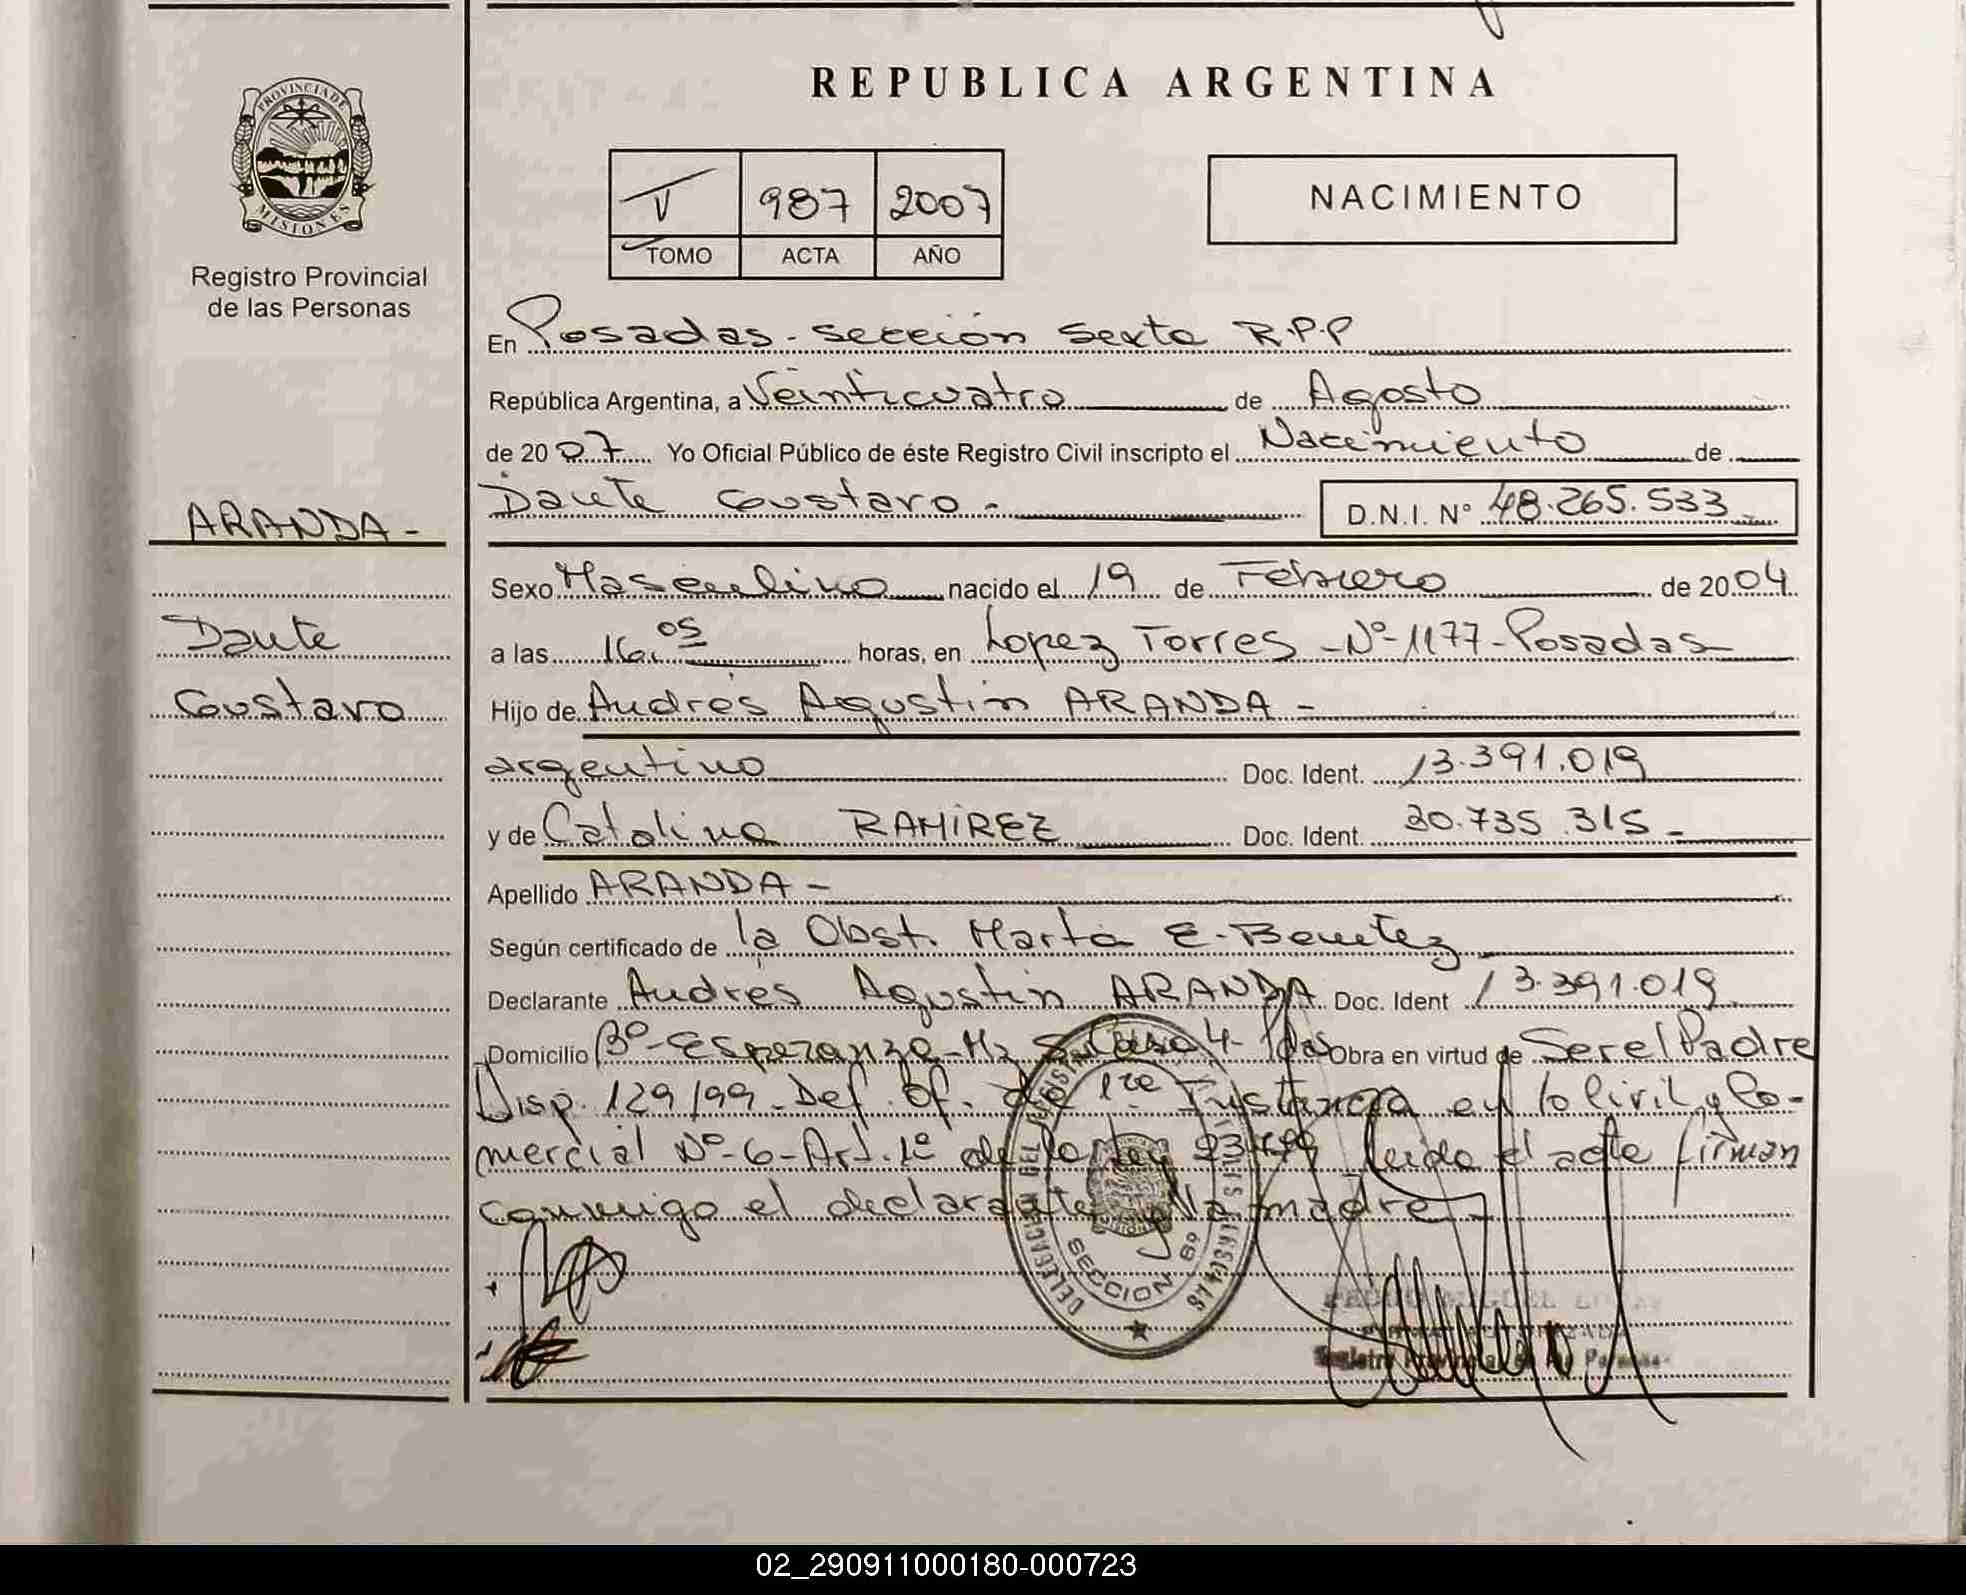 REPUBLICA ARGENTINA
PROVINCIA DE
MISIONES
Registro Provincial
de las Personas
V 987 2007
TOMO ACTA AÑO
NACIMIENTO
En Posadas - sección sexta R.P.P
República Argentina, a Veinticuatro de Agosto
de 2007 Yo Oficial Público de éste Registro Civil inscripto el Nacimiento de
Dante Gustavo - D.N.I. N° 48.265.533
ARANDA -
Dante
Gustavo
Sexo Masculino nacido el 19 de Febrero de 2004
a las 16.05 horas, en Lopez Torres - Nº 1177 - Posadas
Hijo de Andrés Agustín ARANDA -
argentino Doc. Ident. 13.391.019
y de Catalina RAMIREZ Doc. Ident. 30.735.315 -
Apellido ARANDA -
Según certificado de la Obst. Marta E. Benitez
Declarante Andrés Agustin ARANDA Doc. Ident 13.391.019
Domicilio Bº Esperanza - Mz Casa 4 - Pdas Obra en virtud de Ser el Padre
Disp. 129/99 - Def. Of. de 1ra Instancia en lo Civil y Co-
mercial Nº 6 - Art. 1º de la Ley Leida el acta firman
conmigo el declarante y la madre -
DELEGACION DEL REGISTRO
SECCION 6º
Registro Provincial de las Personas
02_290911000180-000723